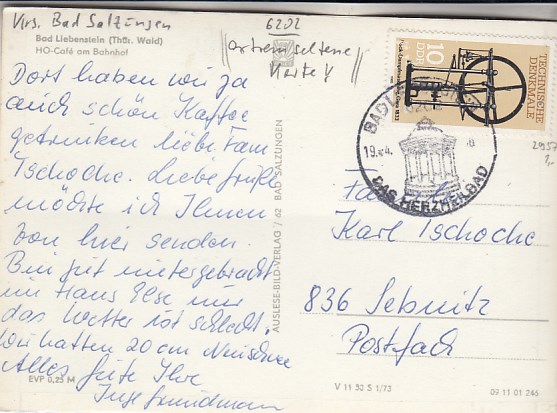 Krs. Bad Salzungen
6202
Bad Liebenstein (Thür. Wald)
HO-Café am Bahnhof
seltene
Marke
Dort haben wir ja
auch schön Kaffee
getrunken liebe Fam
Tschoche. Liebe Grüße
möchte ich Ihnen
von hier senden.
Bin gut untergebracht
im Haus Else nur
das Wetter ist schlecht.
Wir hatten 20 cm Neuschnee
Alles Gute Ihre
Inge Grundmann
EVP 0,25 M
AUSLESE-BILD-VERLAG / 62 BAD SALZUNGEN
10
DDR
TECHNISCHE
DENKMALE
BAD
19.
DAS HERZHEILBAD
2957
Karl Tschoche
836 Sebnitz
Postfach
V 11 50 S 1/73
09 11 01 246